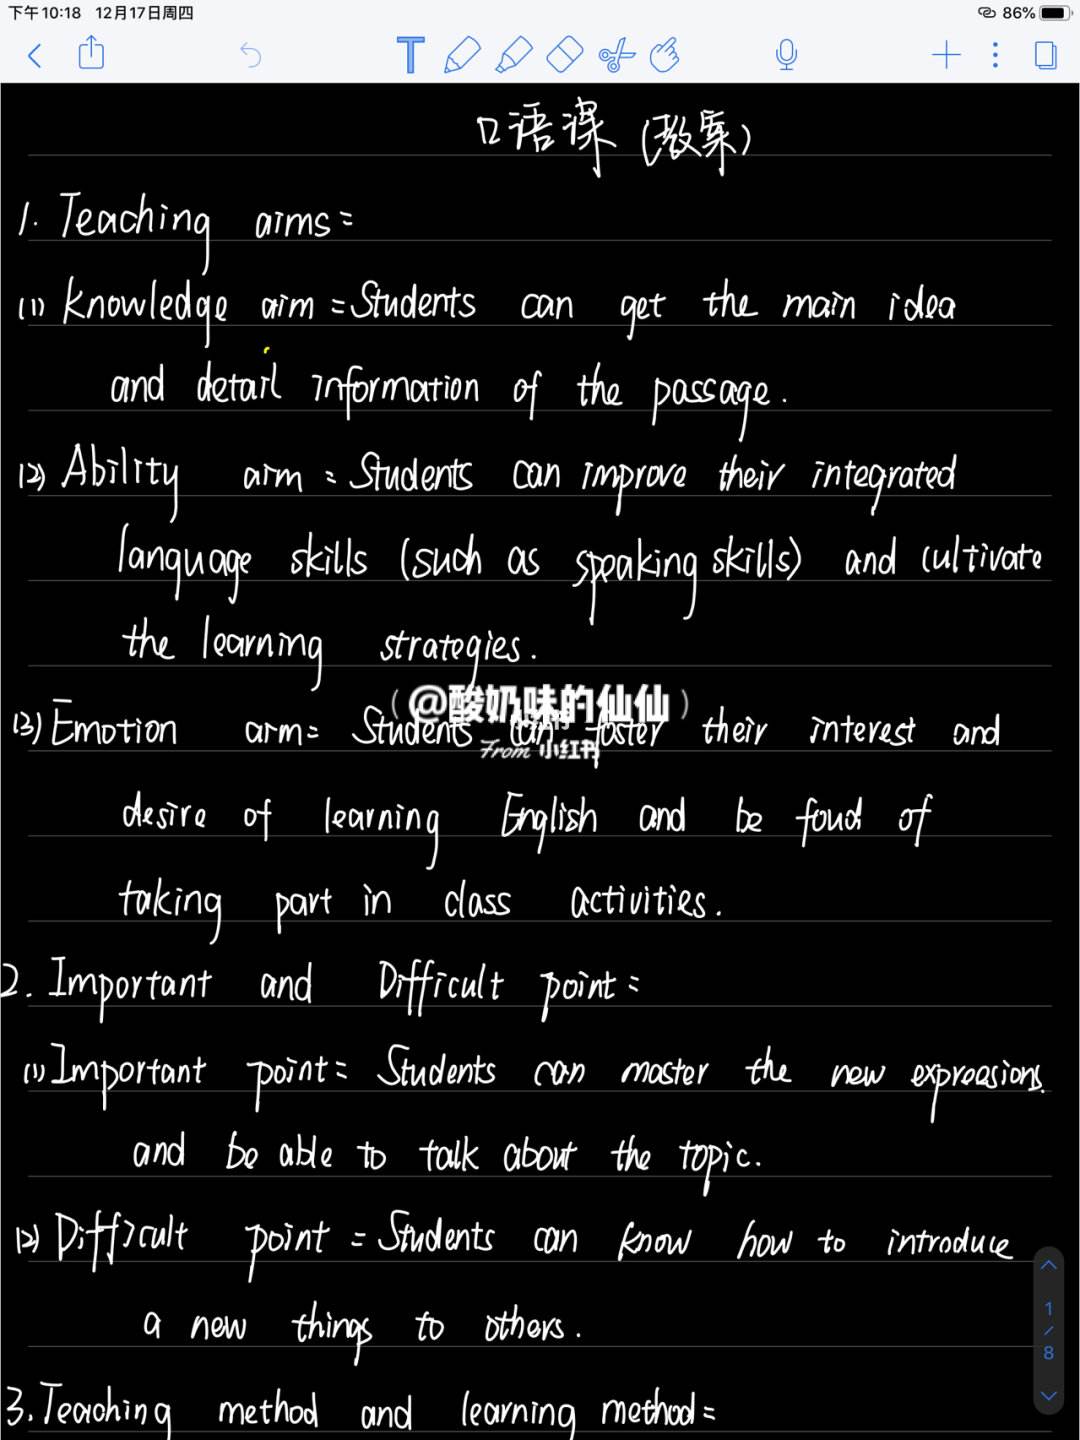 下午10:18 12月17日周四 86%
口语课 (教案)
1. Teaching aims:
(1) Knowledge aim: Students can get the main idea
and detail information of the passage.
(2) Ability aim: Students can improve their integrated
language skills (such as speaking skills) and cultivate
the learning strategies.
(@酸奶味的仙仙)
(3) Emotion aim: Students can foster their interest and
From 小红书
desire of learning English and be foud of
taking part in class activities.
2. Important and Difficult point:
(1) Important point: Students can master the new expressions.
and be able to talk about the topic.
(2) Difficult point: Students can know how to introduce
a new things to others.
1/8
3. Teaching method and learning method: